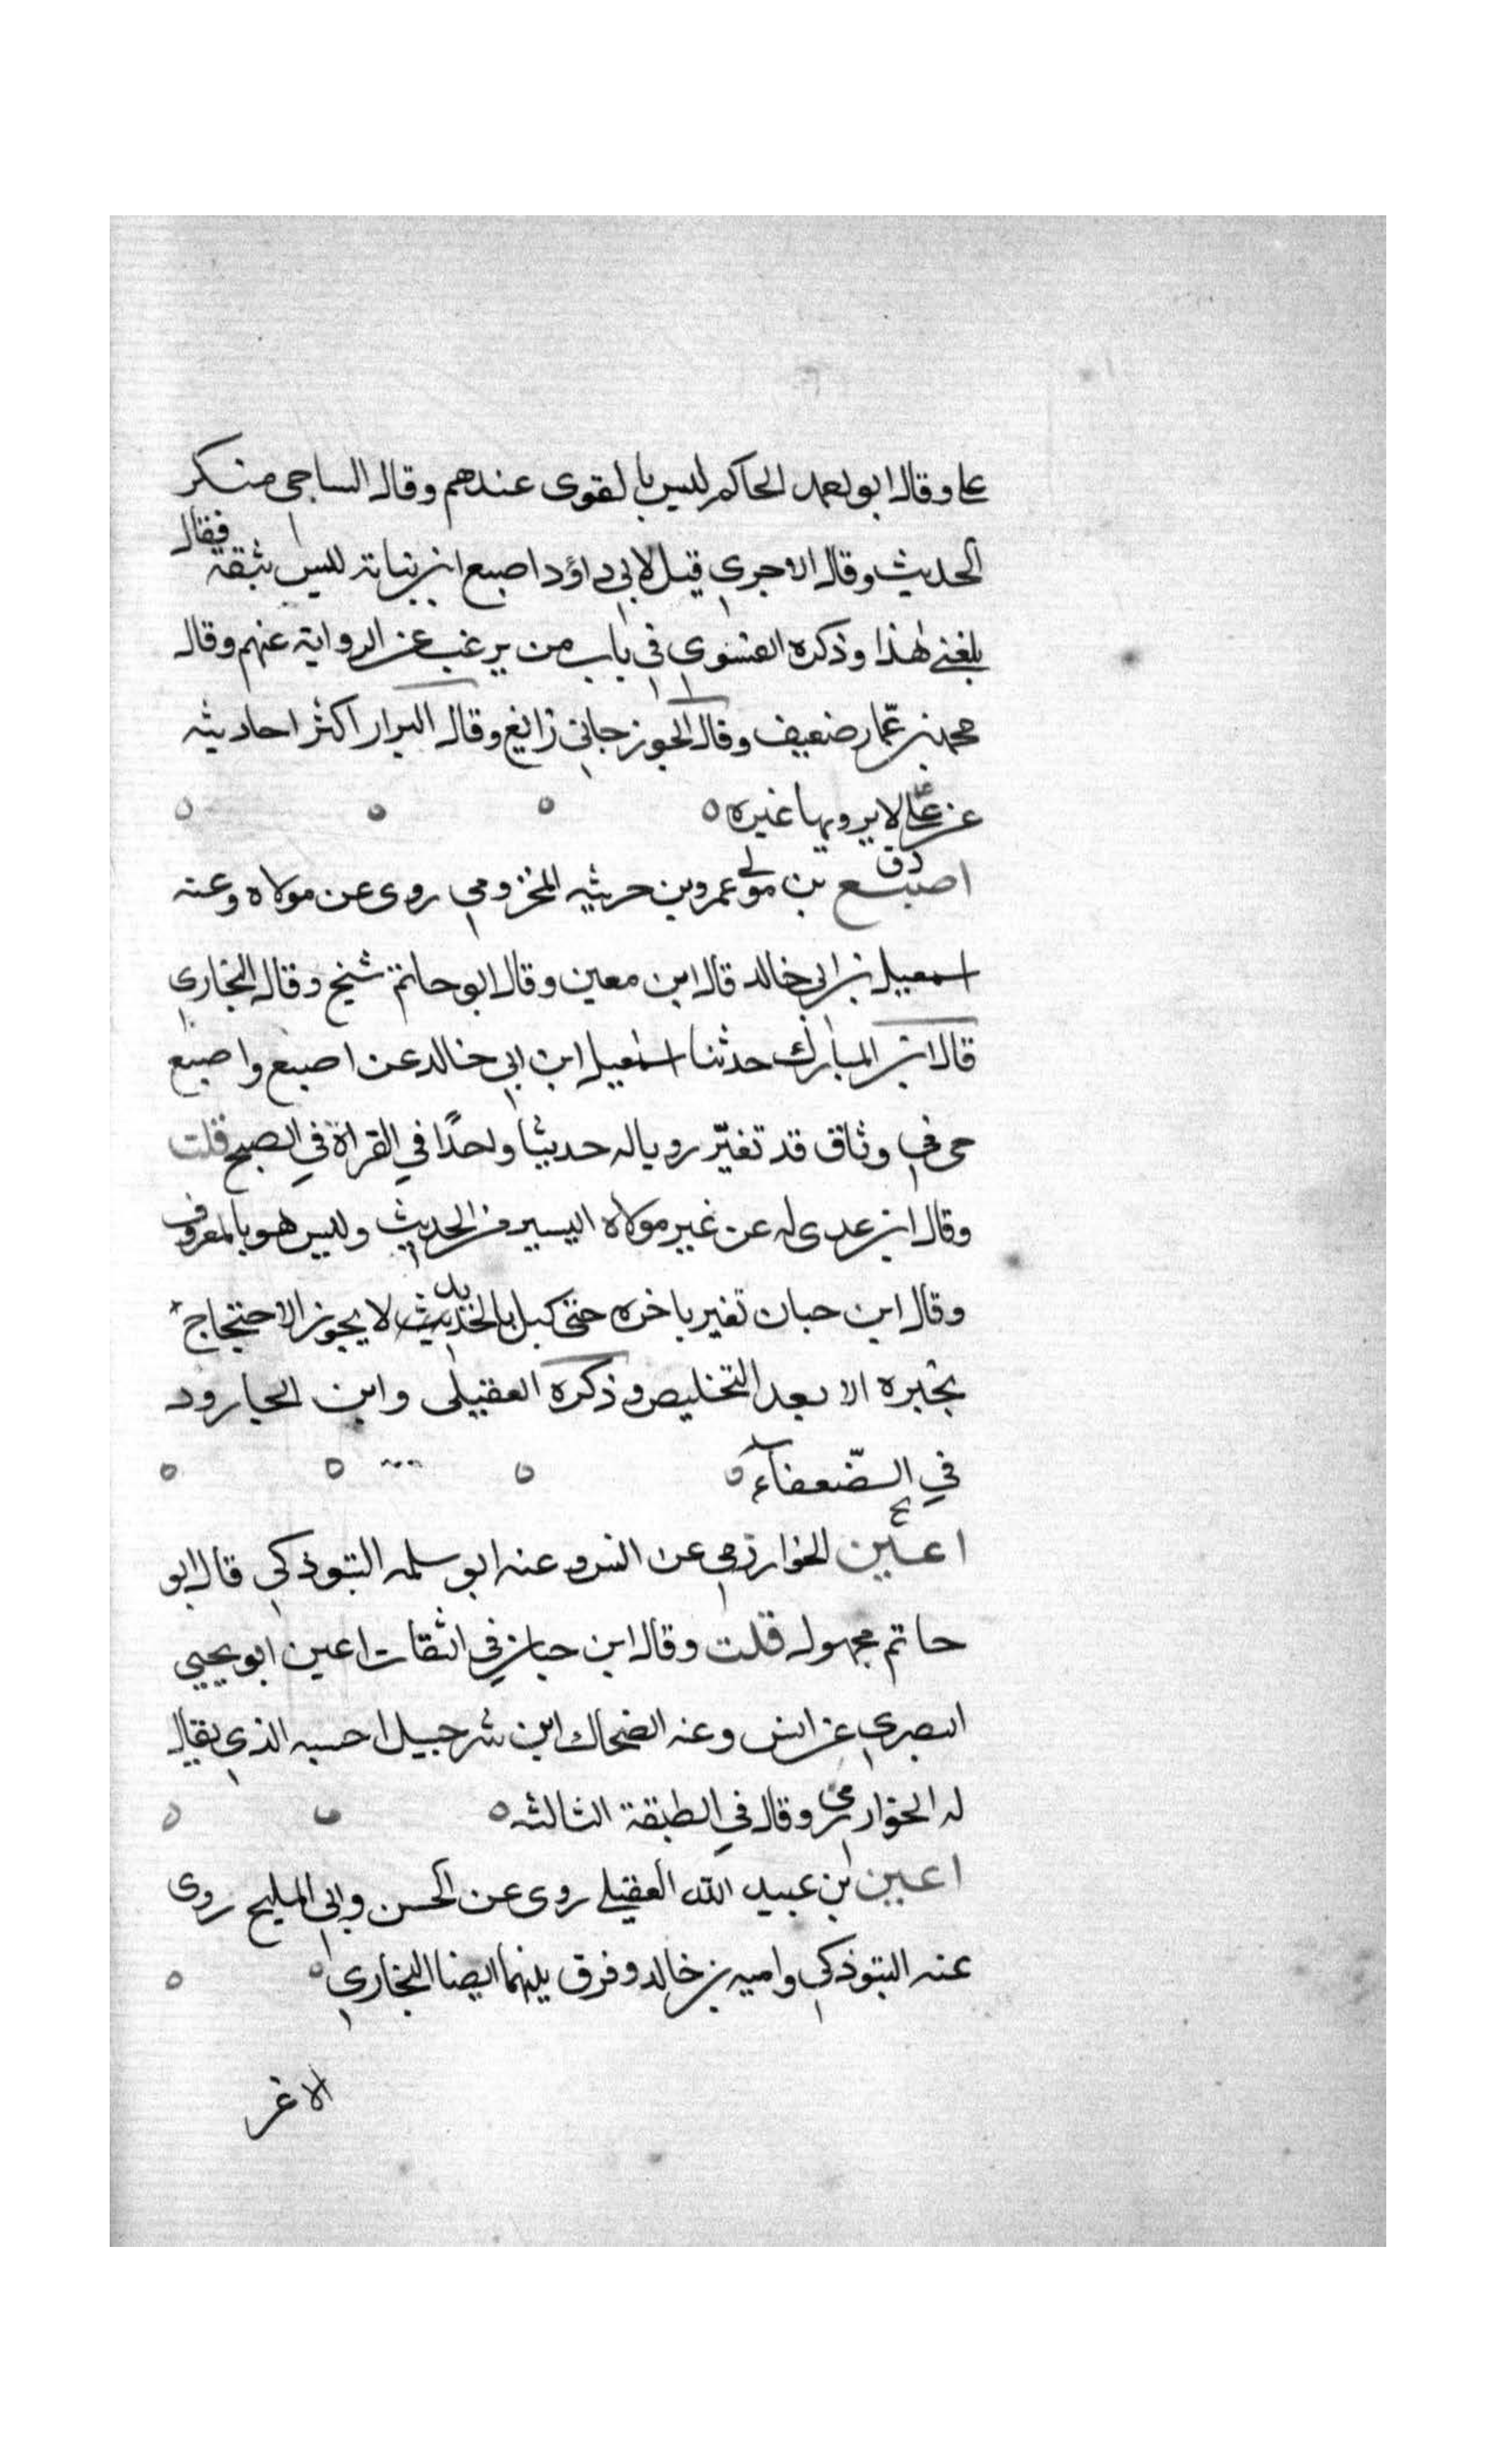 علي وقال ابو احمد الحاكم ليس بالقوى عندهم وقال الساجي منكر
الحديث وقال الاجري قيل لابي داؤد اصبع ابن بناتة ليس بثقة فقال
بلغني هذا وذكره الفسوي في باب من يرغب عن الرواية عنهم وقال
محمد بن عمار ضعيف وقال الجوزجاني زايغ وقال البزار اكثر احاديثه
عن علي لا يرويها غيره
د ق
اصبغ بن مولى عمرو بن حريث المخزومي روى عن مولاه وعنه
اسمعيل بن ابي خالد قال ابن معين وقال ابو حاتم شيخ وقال البخاري
قال ابن المبارك حدثنا اسمعيل ابن ابي خالد عن اصبع واصبغ
حى في وثاق قد تغيّر رويا له حديثا واحدًا في القراة في الصبح قلت
وقال ابن عدى له عن غير مولاه اليسير من الحديث وليس هو بالمعروف
وقال ابن حبان تغير باخره حتى كبل بالحديد لا يجوز الاحتجاج
بخبره الا بعد التخليص وذكره العقيلى وابن الجارود
في الضّعفاء
اعين الخوارزمي عن انس وعنه ابو سلمه التبوذكي قال ابو
حاتم مجهول قلت وقال ابن حبان في الثقات اعين ابو يحيي
البصري عن انس وعنه الضحاك ابن شرحبيل احسبه الذي يقال
له الخوارزمى وقال في الطبقة الثالثه
اعين بن عبيد الله العقيلي روى عن الحسن وابي المليح روى
عنه التبوذكي واميه بن خالد وفرق بينهما ايضا البخاري
الاغر